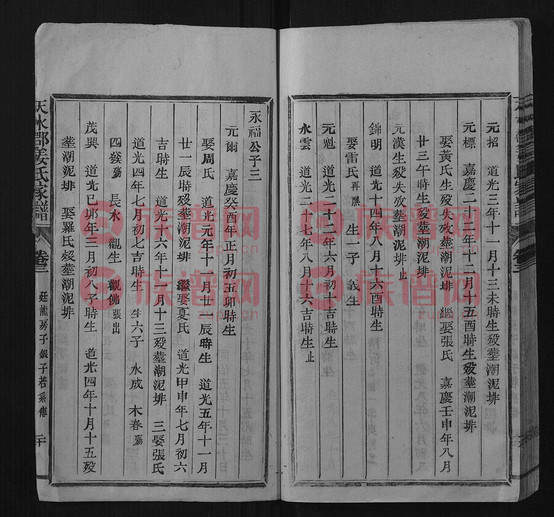 元招 道光三年十一月十三未時生 歿塟潮泥排
元標 嘉慶二十年十二月十五酉時生 歿塟潮泥排
娶黃氏生歿失攷塟潮泥排 繼娶張氏 嘉慶壬申年八月
廿三午時生 歿塟潮泥排
元漢生歿失攷塟潮泥排
錦明 道光十四年八月十六酉時生
娶雷氏再醮 生一子 義生
元魁 道光二十二年六月初十吉時生
永雲 道光二十七年八月十六吉時生止
永福公子三
元爾 嘉慶癸酉年正月初五卯時生
娶周氏 道光元年十二月廿一辰時生 道光五年十一月
廿一辰時歿塟潮泥排 繼娶夏氏 道光甲申年七月初六
吉時生 道光十六年十月十三歿塟潮泥排 三娶張氏
道光四年七月初七吉時生 生六子 永成 木春
四發 長水 觀生 觀佛張出
茂興 道光己卯年三月初八子時生 道光四年十月十五歿
塟潮泥排 娶羅氏歿塟潮泥排
天水郡姜氏家譜 卷三
族谱网
族谱网
族谱网
族谱网